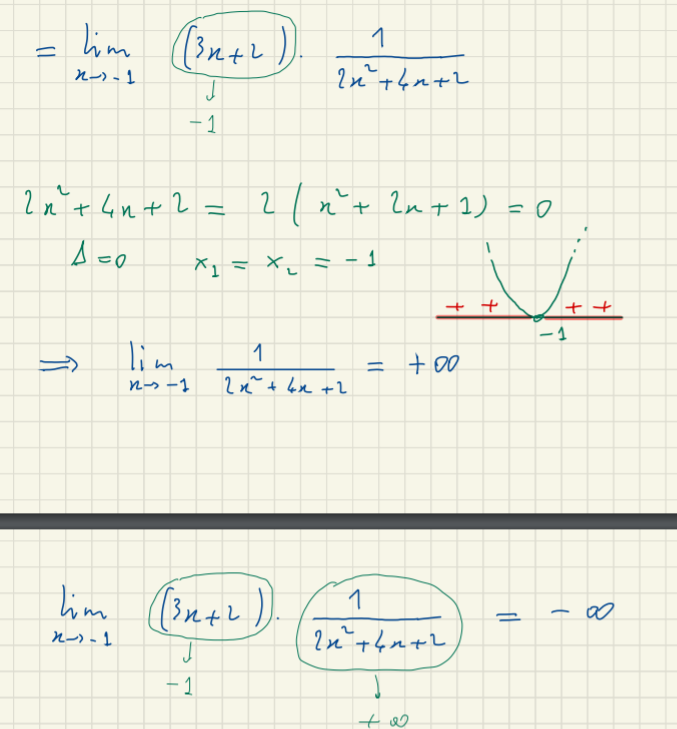 = lim (3x+2) . 1/(2x²+4x+2)
x→-1
↓
-1
2x²+4x+2 = 2(x²+2x+1) = 0
Δ=0 x₁ = x₂ = -1
+ + + +
-1
⟹ lim 1/(2x²+4x+2) = +∞
x→-1
lim (3x+2) . 1/(2x²+4x+2) = -∞
x→-1
↓ ↓
-1 +∞